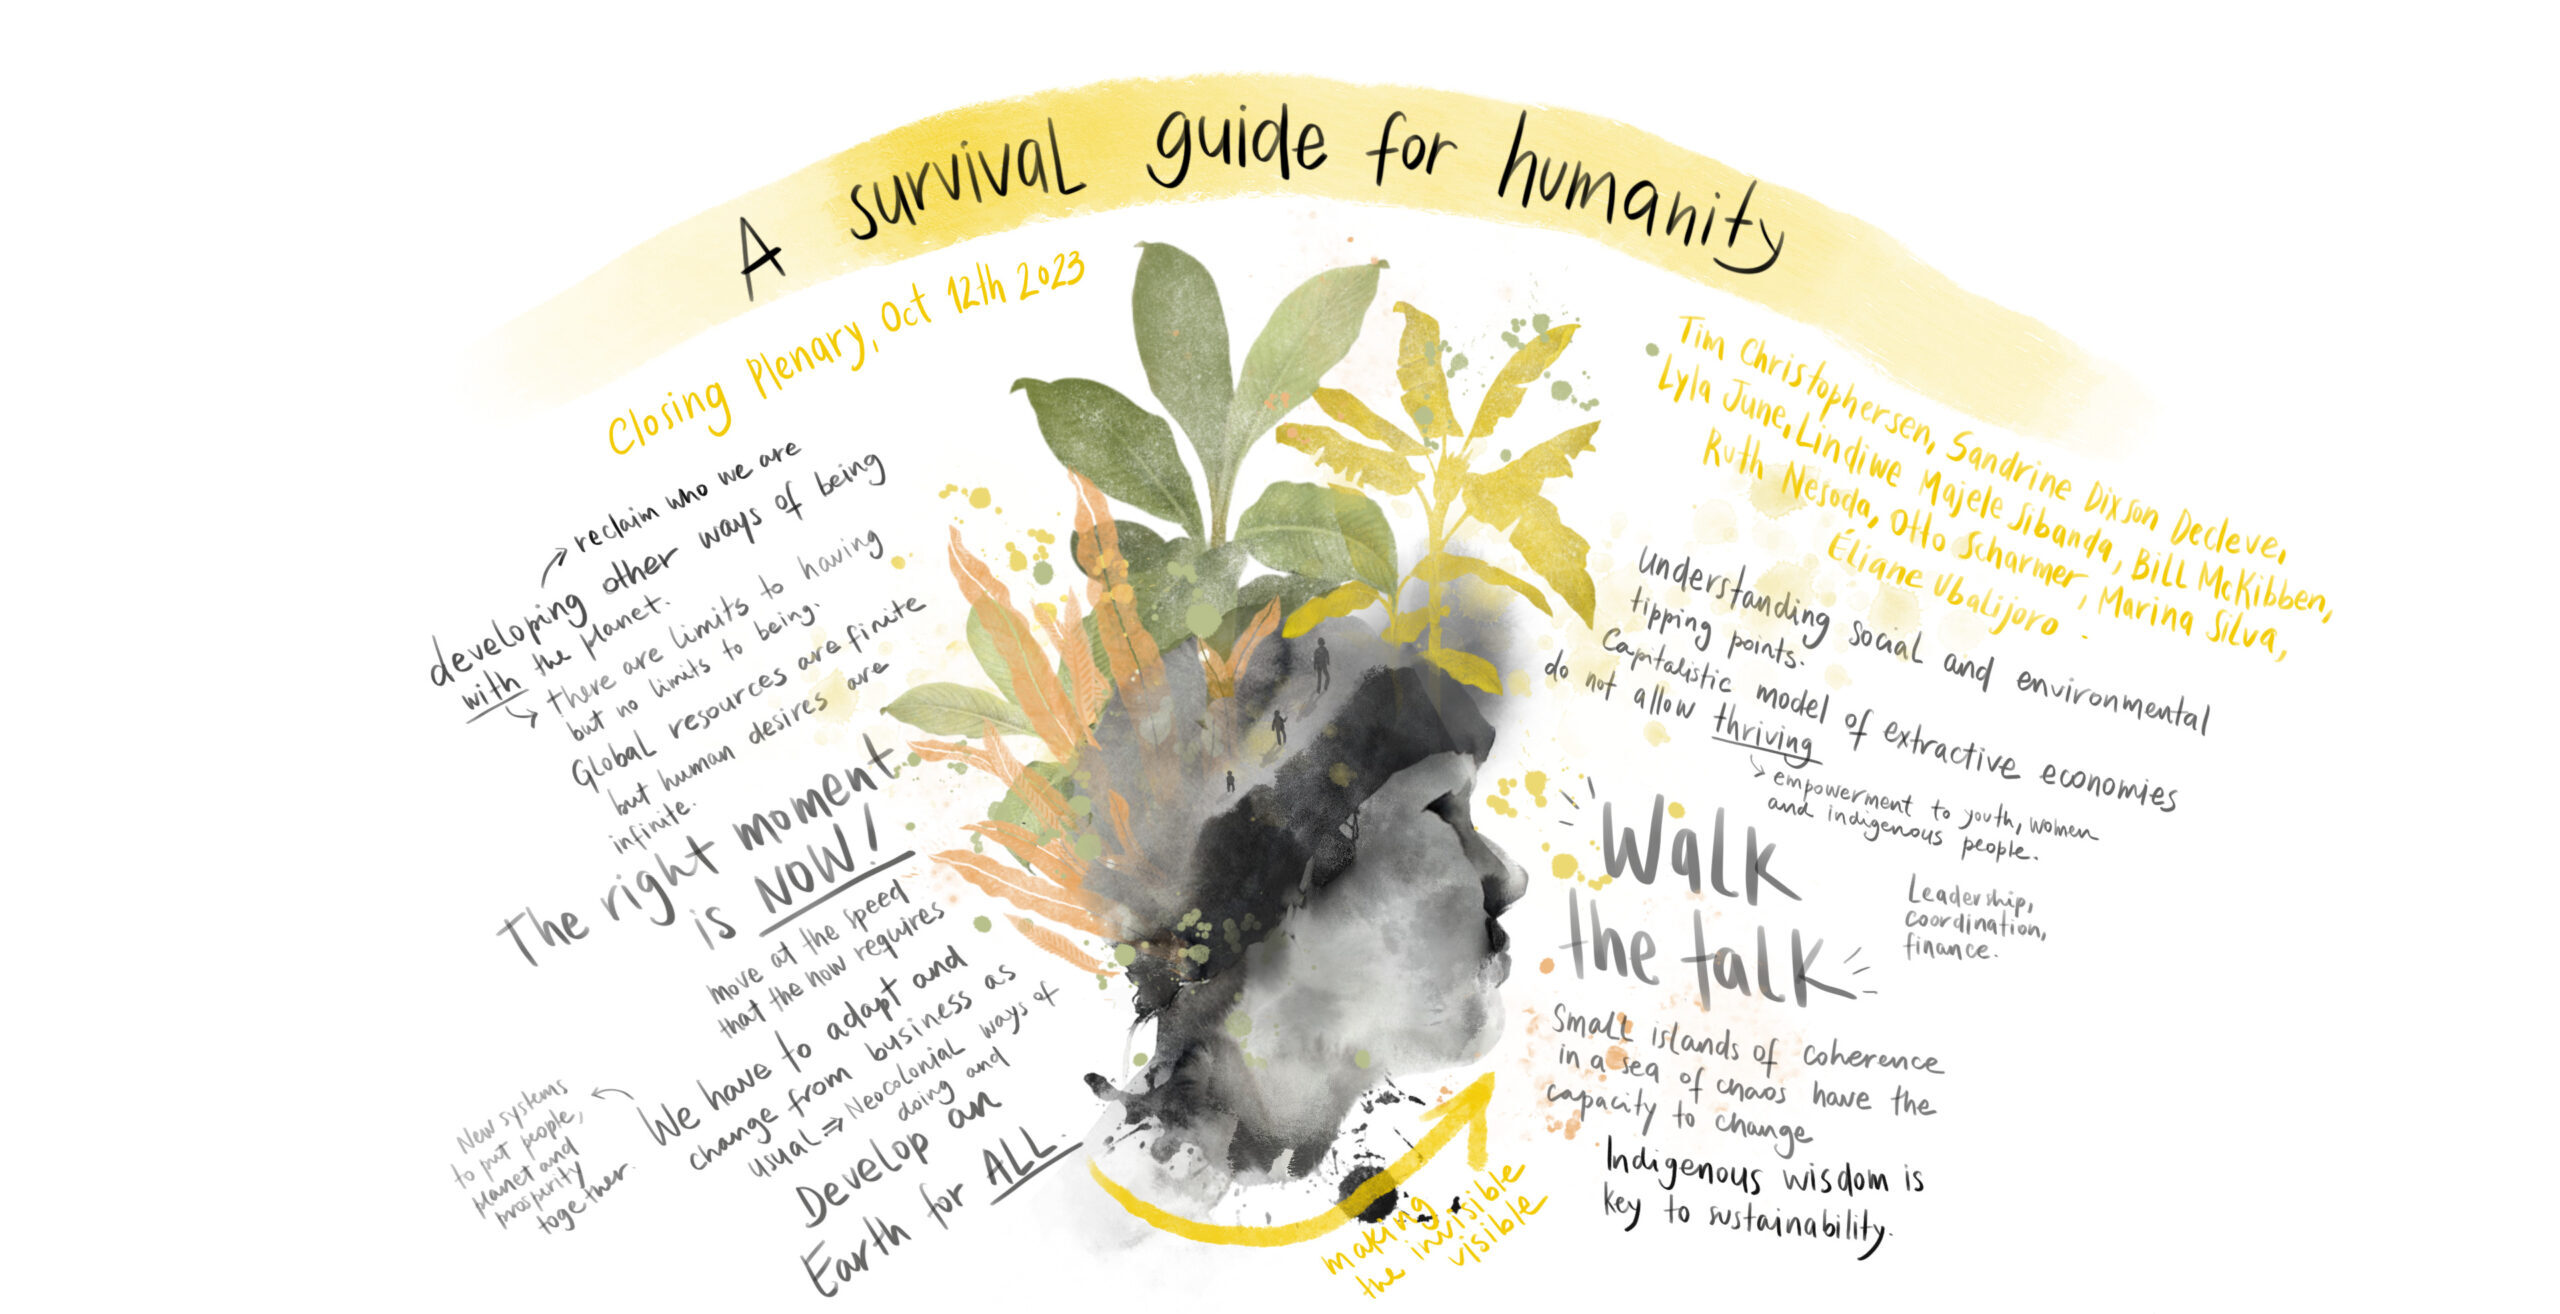 A survival guide for humanity
Closing Plenary, Oct 12th 2023
reclaim who we are
developing other ways of being
with the planet.
there are limits to having
but no limits to being.
Global resources are finite
but human desires are
infinite.
The right moment
is NOW!
move at the speed
that the now requires
We have to adapt and
change from business as
usual ⇒ Neocolonial ways of
doing and
New systems
to put people,
planet and
prosperity
together.
Develop an
Earth for ALL.
making
the invisible
visible
Tim Christophersen, Sandrine Dixson Decleve,
Lyla June, Lindiwe Majele Sibanda, Bill McKibben,
Ruth Nesoda, Otto Scharmer, Marina Silva,
Éliane Ubalijoro -
understanding social and environmental
tipping points.
Capitalistic model of extractive economies
do not allow thriving
empowerment to youth, women
and indigenous people.
Walk
the talk
Leadership,
coordination,
finance.
Small islands of coherence
in a sea of chaos have the
capacity to change
Indigenous wisdom is
key to sustainability.